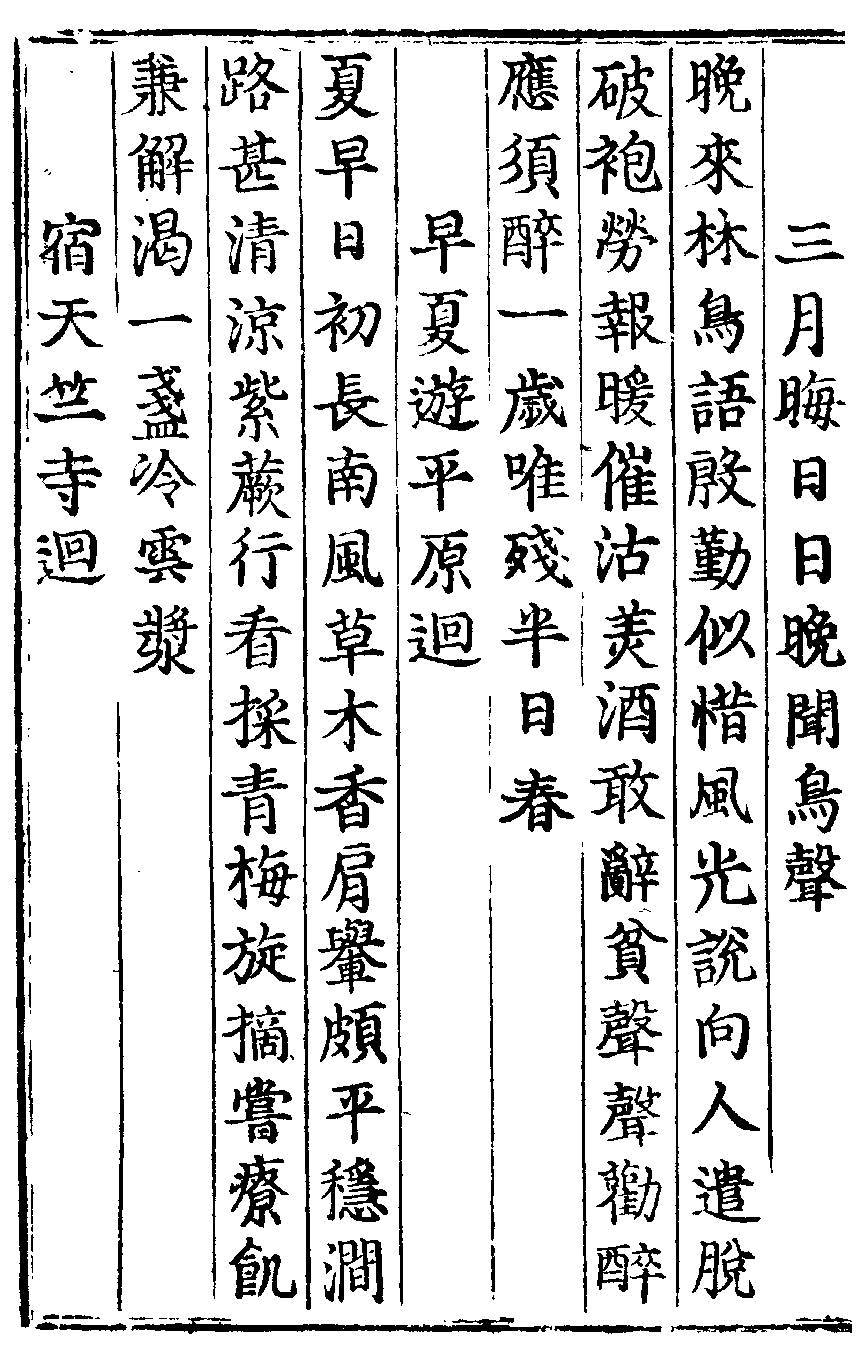 三月晦日日晚聞鳥聲
晚來林鳥語殷勤似惜風光說向人遣脫
破袍勞報暖催沽美酒敢辭貧聲聲勸醉
應須醉一歲唯殘半日春
早夏遊平原迴
夏早日初長南風草木香肩轝頗平穩澗
路甚清涼紫蕨行看採青梅旋摘嘗療飢
兼解渴一盞冷雲漿
宿天竺寺迴